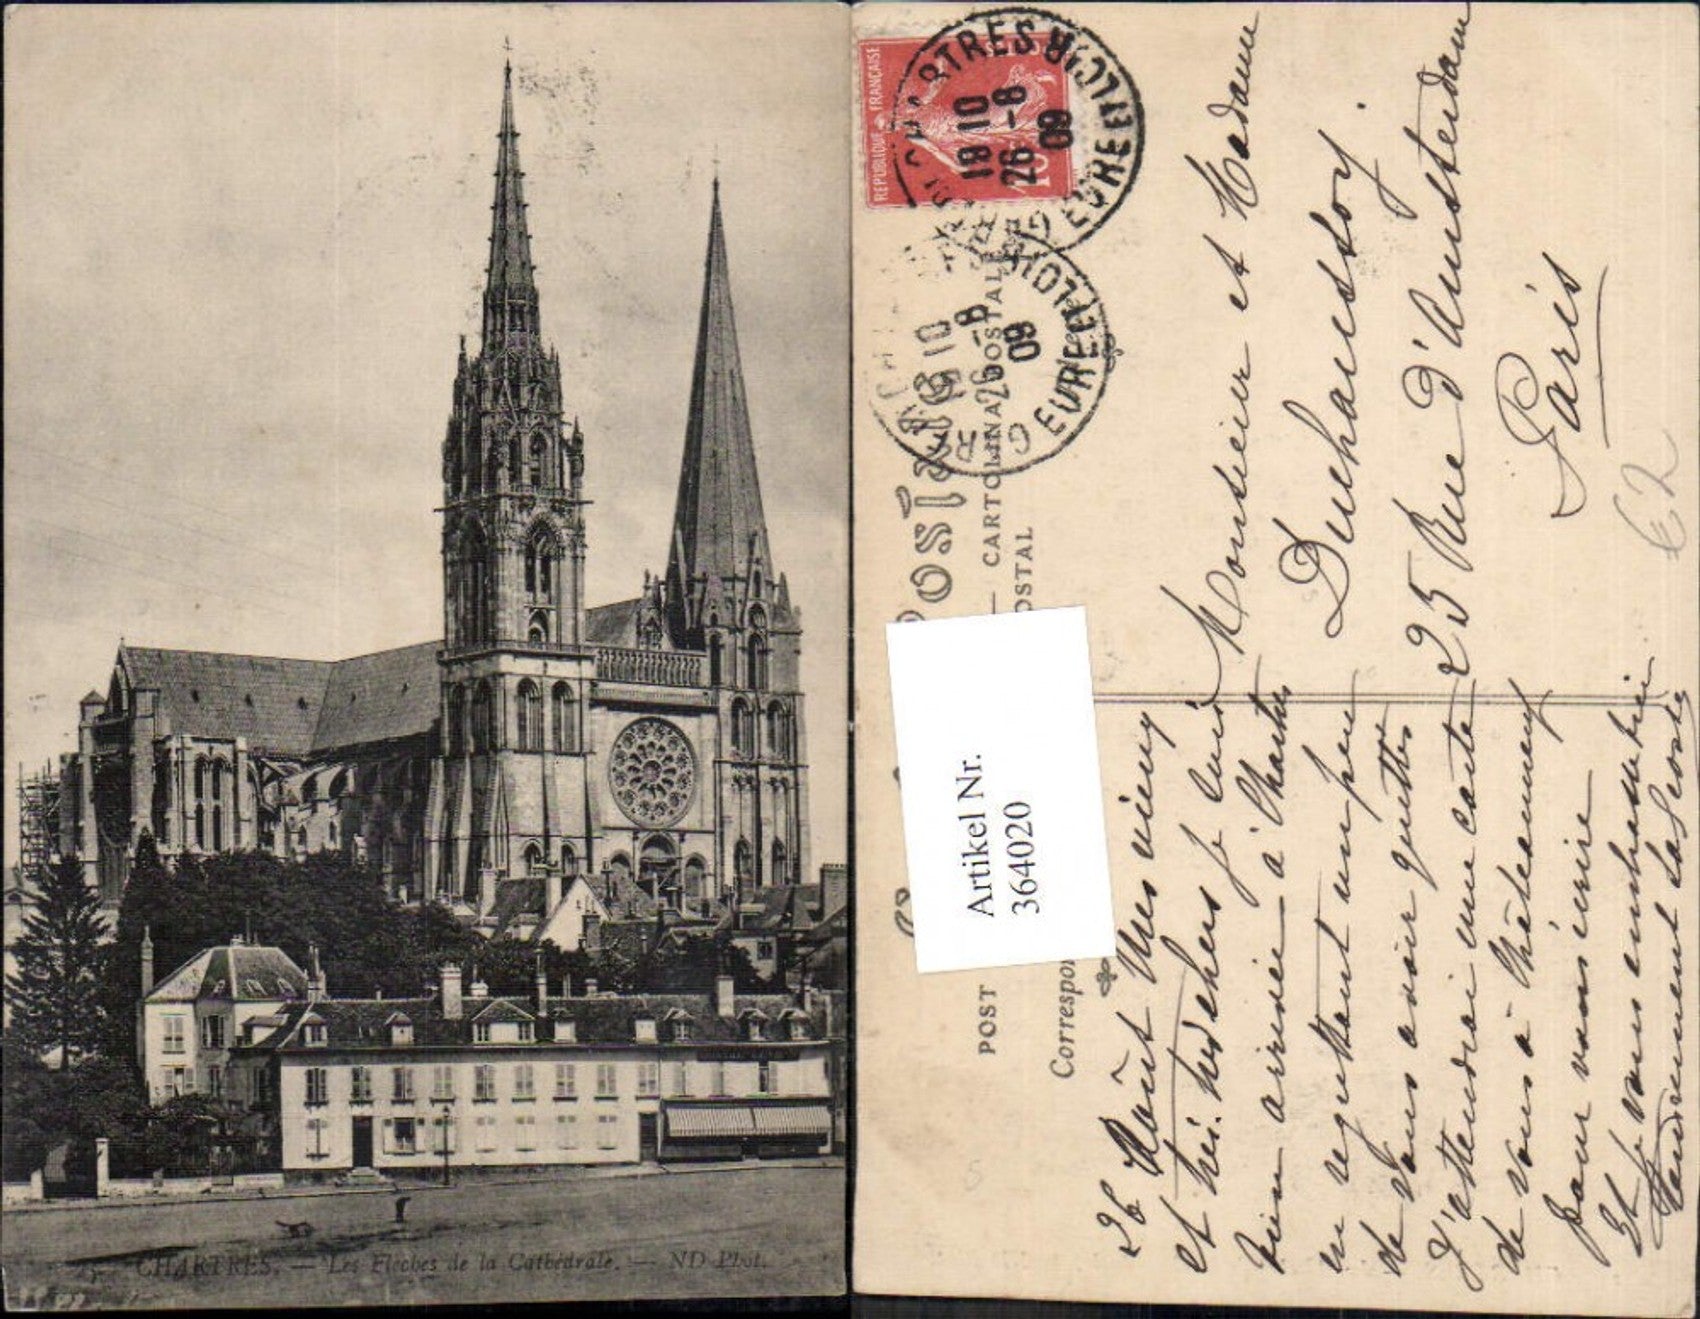 CHARTRES. — Les Flèches de la Cathédrale. — ND Phot.
REPUBLIQUE FRANÇAISE
10
CHARTRES
18 10
26 -8
09
EURE ET LOIR
10
-8
09
EURE ET LOIR
CARTOLINA POSTALE
POSTAL
POST
Correspon
Artikel Nr.
364020
Monsieur et Madame
25 Rue d'Amsterdam
Paris
€2
5
26 Août Mes vieux
et très. chers je suis
bien arrivée à Chartres
en regrettant un peu
de vous avoir quittés
J'attendrai une carte
de vous à Châteauneuf
pour vous écrire
Et je vous embrasse bien
tendrement